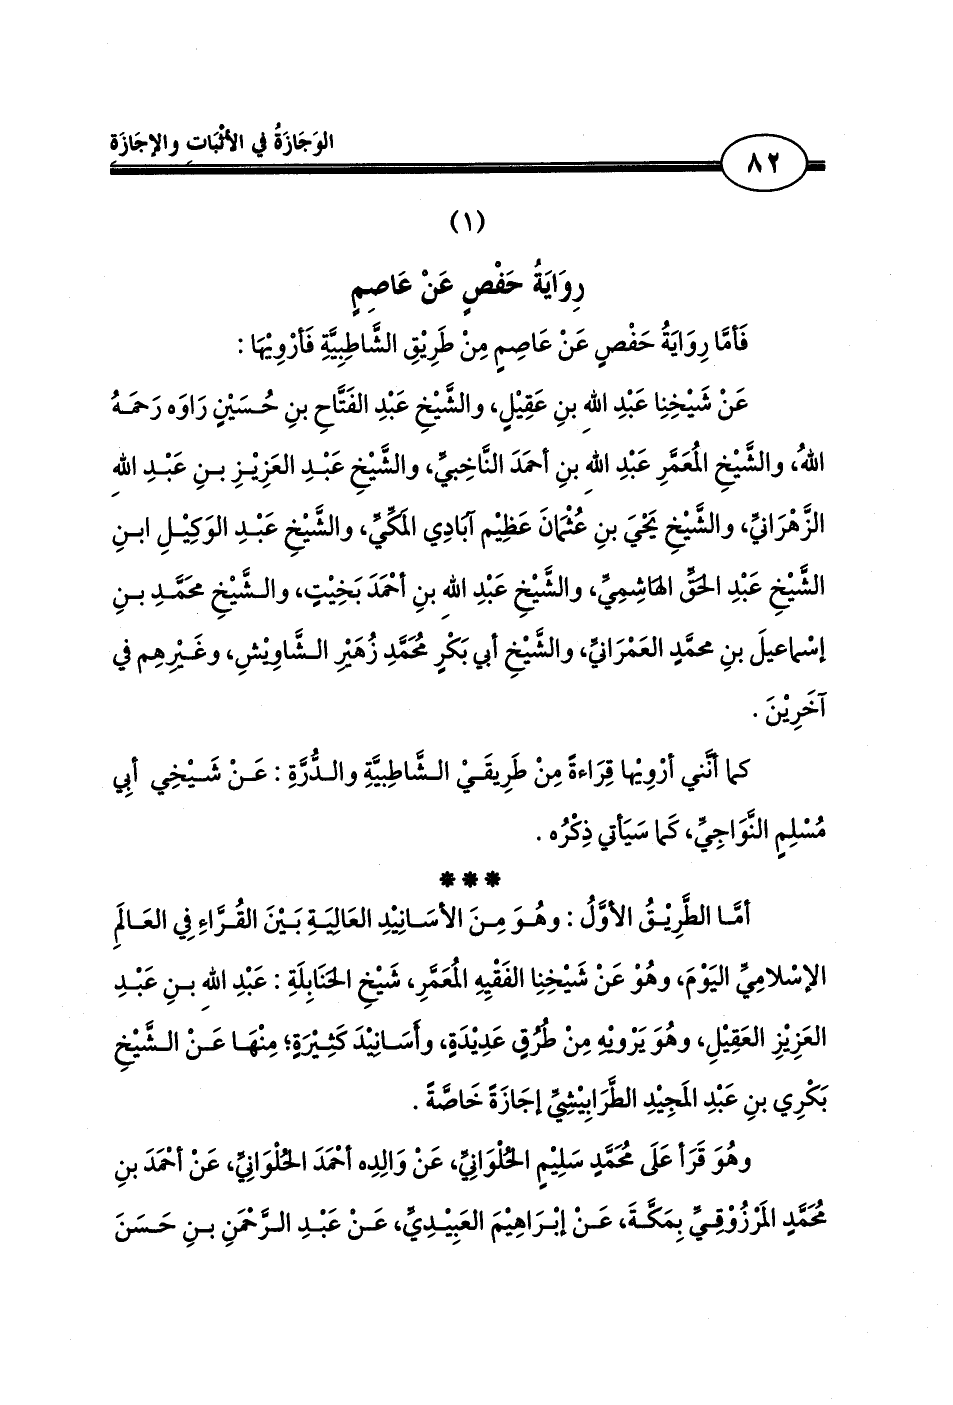 الوَجَازَةُ في الأثْبَاتِ والإجَازَةِ
٨٢
(١)
رِوَايَةُ حَفْصٍ عَنْ عَاصِمٍ
فَأمَّا رِوَايَةُ حَفْصٍ عَنْ عَاصِمٍ مِنْ طَرِيْقِ الشَّاطِبِيَّةِ فَأرْوِيْهَا :
عَنْ شَيْخِنَا عَبْدِ اللهِ بنِ عَقِيْلٍ، والشَّيْخِ عَبْدِ الفَتَّاحِ بنِ حُسَيْنٍ رَاوَه رَحمَهُ
اللهُ، والشَّيْخِ المُعَمَّرِ عَبْدِ اللهِ بنِ أحمَدَ النَّاخِبيِّ، والشَّيْخِ عَبْدِ العَزِيْزِ بنِ عَبْدِ اللهِ
الزَّهْرَانيِّ، والشَّيْخِ يَحْيَ بنِ عُثْمانَ عَظِيْم آبَادِي المَكِّيِّ، والشَّيْخِ عَبْدِ الوَكِيْلِ ابنِ
الشَّيْخِ عَبْدِ الحَقِّ الهَاشِمِيِّ، والشَّيْخِ عَبْدِ اللهِ بنِ أحْمَدَ بَخِيْتٍ، والشَّيْخِ محَمَّدِ بنِ
إسْماعِيلَ بنِ محمَّدٍ العَمْرَانيِّ، والشَّيْخِ أبي بَكْرٍ مُحَمَّدِ زُهَيْرِ الشَّاوِيْشِ، وغَيْرِهِم في
آخَرِيْنَ .
كما أنَّني أرْوِيْها قِرَاءةً مِنْ طَرِيقَيْ الشَّاطِبِيَّةِ والدُّرَّةِ : عَنْ شَيْخِي أبي
مُسْلِمٍ النَّوَاجِيِّ، كَما سَيَأتي ذِكْرُه .
***
أمَّا الطَّرِيْقُ الأوَّلُ : وهُوَ مِنَ الأسَانِيْدِ العَالِيَةِ بَيْنَ القُرَّاءِ في العَالَمِ
الإسْلامِيِّ اليَوْمَ، وهُوْ عَنْ شَيْخِنَا الفَقِيْهِ المُعَمَّرِ، شَيْخِ الحَنَابِلَةِ : عَبْدِ اللهِ بنِ عَبْدِ
العَزِيْزِ العَقِيْلِ، وهُوَ يَرْوِيْهِ مِنْ طُرُقٍ عَدِيْدَةٍ، وأسَانِيْدَ كَثِيْرَةٍ؛ مِنْهَا عَنْ الشَّيْخِ
بَكْرِي بنِ عَبْدِ المَجِيْدِ الطَّرَابِيْشِيِّ إجَازَةً خَاصَّةً .
وهُوَ قَرَأ عَلَى مُحَمَّدٍ سَلِيْمٍ الحُلْوَانيِّ، عَنْ وَالِدِه أحمَدَ الحُلْوَانيِّ، عَنْ أحْمَدَ بنِ
مُحَمَّدٍ المَرْزُوْقِيِّ بِمَكَّةَ، عَنْ إبْرَاهِيْمَ العَبِيْدِيِّ، عَنْ عَبْدِ الرَّحْمَنِ بنِ حَسَنَ